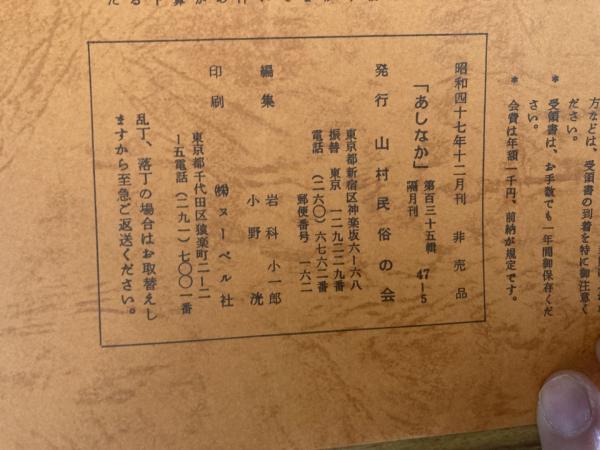 方などは、受領書の到着を特に御注意く
ださい。
＊ 受領書は、お手数でも一年間御保存くだ
さい。
＊ 会費は年額一千円、前納が規定です。
昭和四十七年十二月刊 非売品
「あしなか」 第百三十五輯 47-5
隔月刊
発行 山村民俗の会
東京都新宿区神楽坂六ー六八
振替 東京 一二九二二九番
電話 （二六〇）六七六二番
郵便番号 一六二
編集 岩科小一郎
小野 洸
印刷 ㈱ヌーベル社
東京都千代田区猿楽町二ー二
ー五電話（二九一）七〇〇一番
乱丁、落丁の場合はお取替えし
ますから至急ご返送ください。